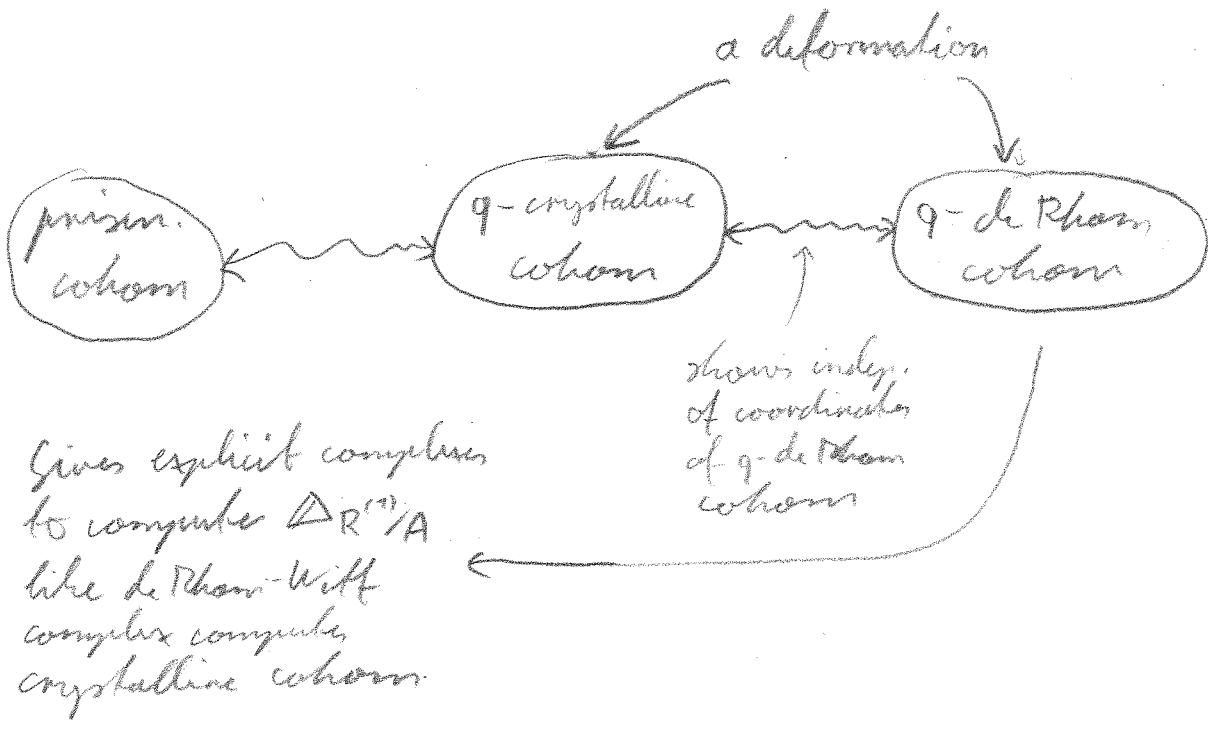 a deformation
prism.
cohom
q-crystalline
cohom
q-de Rham
cohom
shows indep.
of coordinates
of q-de Rham
cohom
Gives explicit complexes
to compute Δ_R^(1)/A
like de Rham-Witt
complex computes
crystalline cohom.